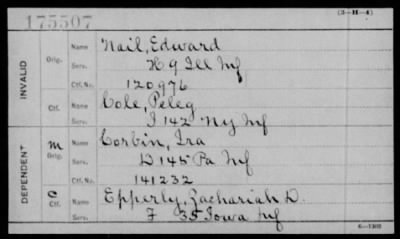 175507 (3-H-4)
INVALID
Orig. Name Nail, Edward
Serv. H 9 Ill Inf
Ctf. No. 120976
Ctf. Name Cole, Peleg
Serv. I 142 Ny Inf
DEPENDENT
m Orig. Name Corbin, Ira
Serv. D 145 Pa Inf
Ctf. No. 141232
C Ctf. Name Epperly, Zachariah D.
Serv. F 35 Iowa Inf